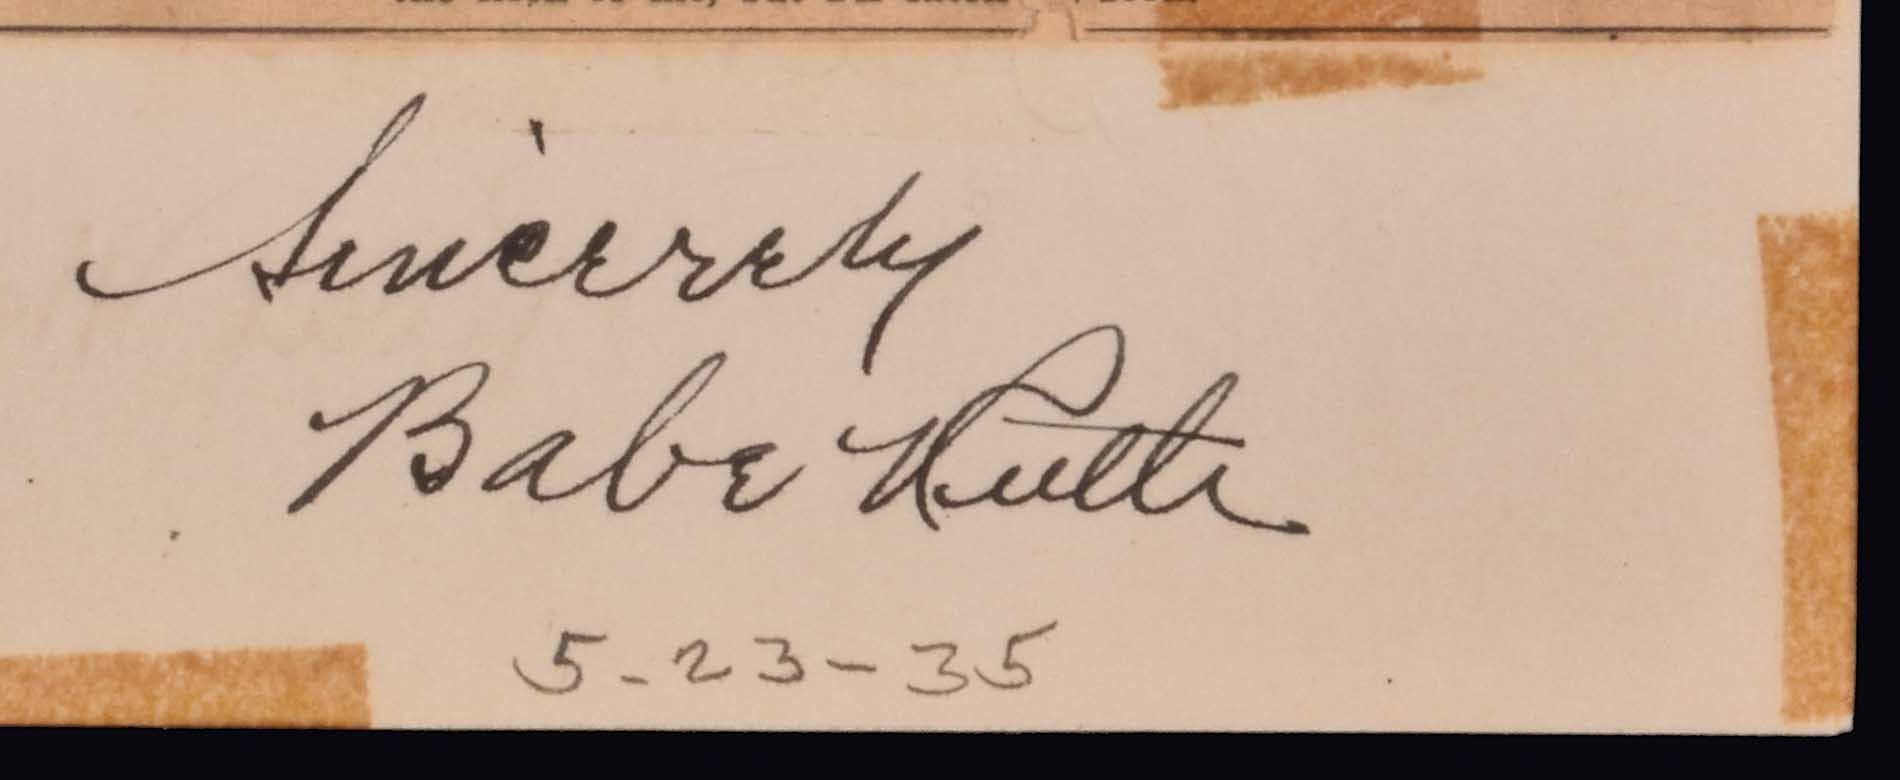 Sincerely
Babe Ruth
5-23-35